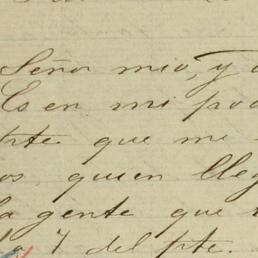 Señor mio, y
Es en mi pod
que me
os, quien lleg
la gente que
7 del pte.